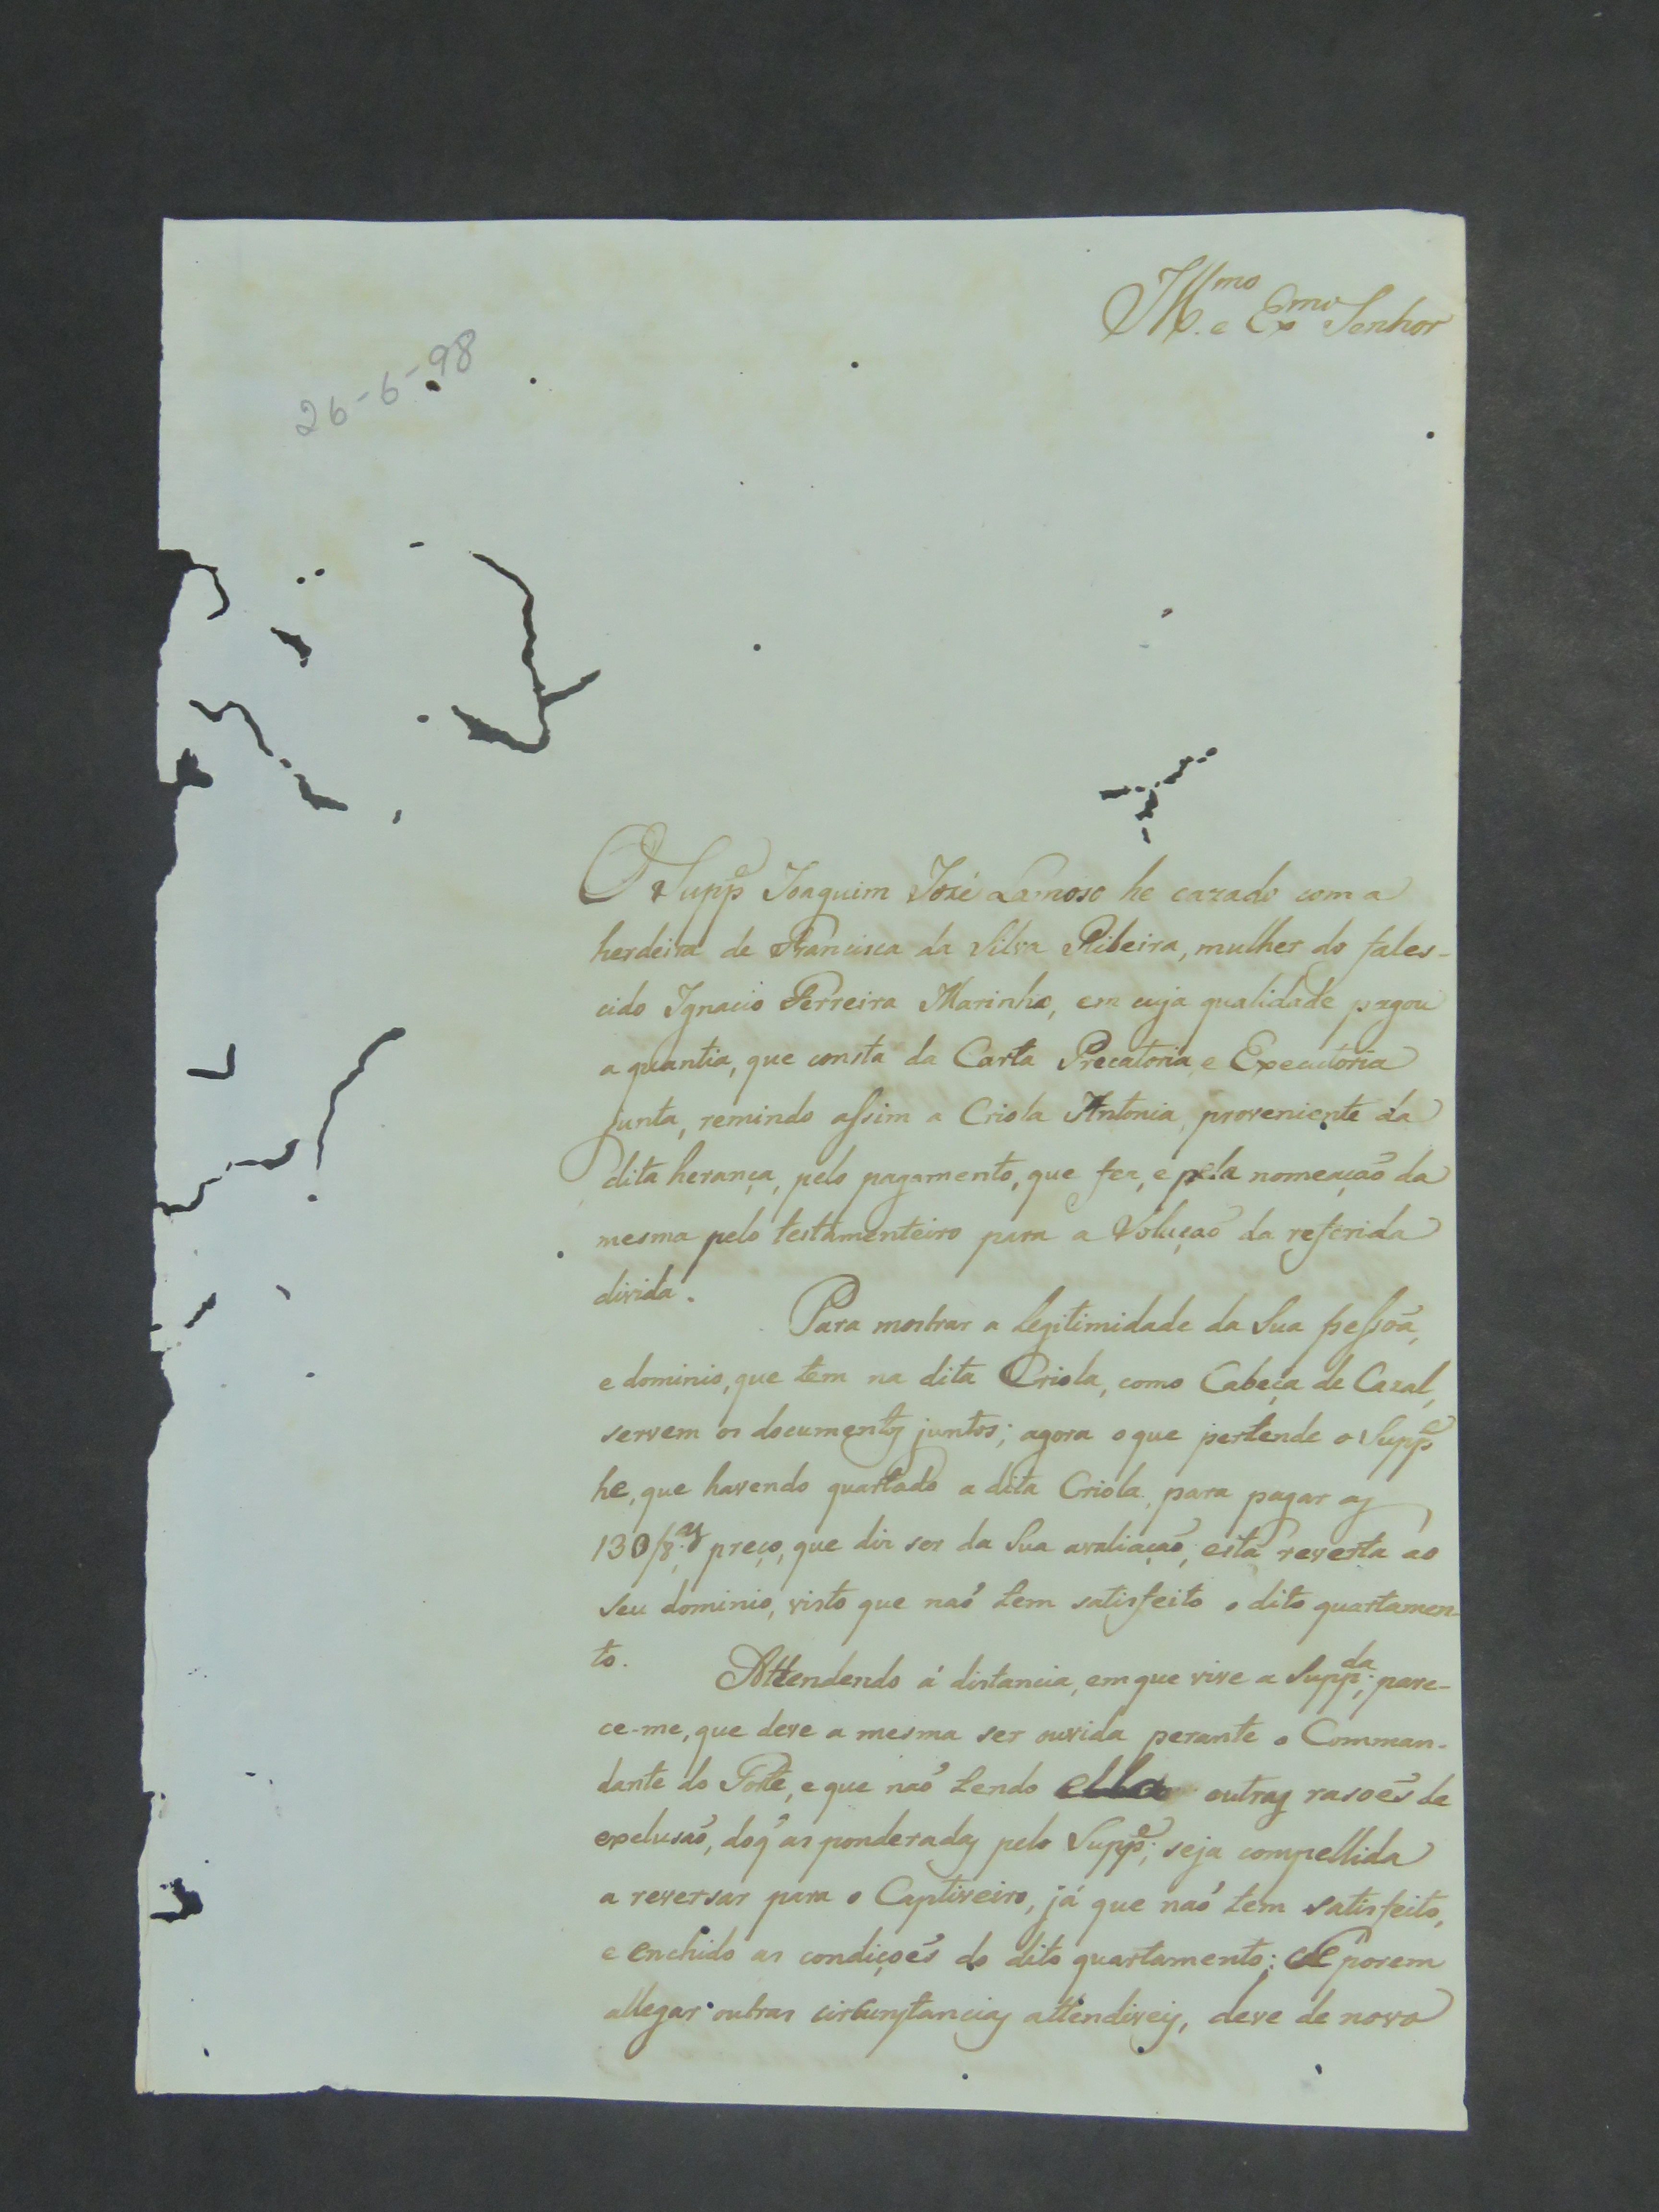 Illmo. e Exmo Senhor
26-6-98
O Suppe Joaquim José Lamoso he cazado com a
herdeira de Francisca da Silva Ribeira, mulher do fales-
cido Ignacio Ferreira Marinho, em cuja qualidade pagou
a quantia, que consta da Carta Precatoria, e Executoria
junta, remindo assim a Criola Antonia, proveniente da
dita herança, pelo pagamento, que fez, e pela nomeação da
mesma pelo testamenteiro para a Solução da referida
divida.
Para mostrar a legitimidade da Sua pessôa,
e dominio, que tem na dita Criola, como Cabeça de Cazal,
servem os documentos juntos; agora o que pertende o Suppe
he, que havendo quartado a dita Criola, para pagar as
130/8as preço, que diz ser da Sua avaliação, esta reverta ao
seu dominio, visto que naõ tem satisfeito o dito quartamen-
to.
Attendendo á distancia, em que vive a Suppda; pare-
ce-me, que deve a mesma ser ouvida perante o Comman-
dante do Forte, e que naõ tendo ella outras rasoẽs de
exclusaõ, do q̃ as ponderadas pelo Suppe; seja compellida
a reversar para o Captiveiro, já que naõ tem satisfeito,
e enchido as condiçoẽs do dito quartamento; Se porem
allegar outras circunstancias attendiveis, deve de novo